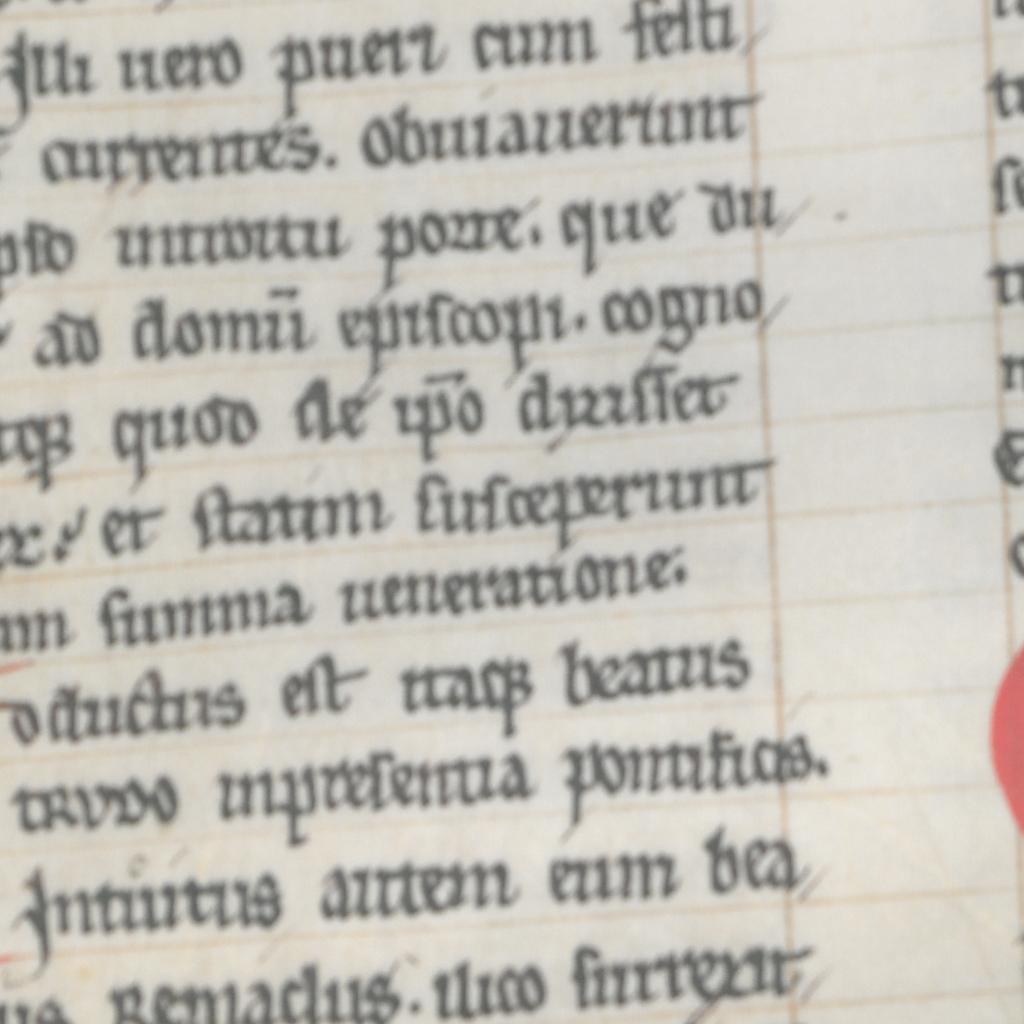 Illi uero pueri cum festi
currentes. obuiauerunt
introitu porte. que du
ad domū episcopi. cogno
quod de ip̄o dixisset
et statim susceperunt
summa ueneratione.
ductus est itaqꝫ beatus
trudo in presentia pontificis.
Intuitus autem eum bea
Remaclus. ilico surrexit